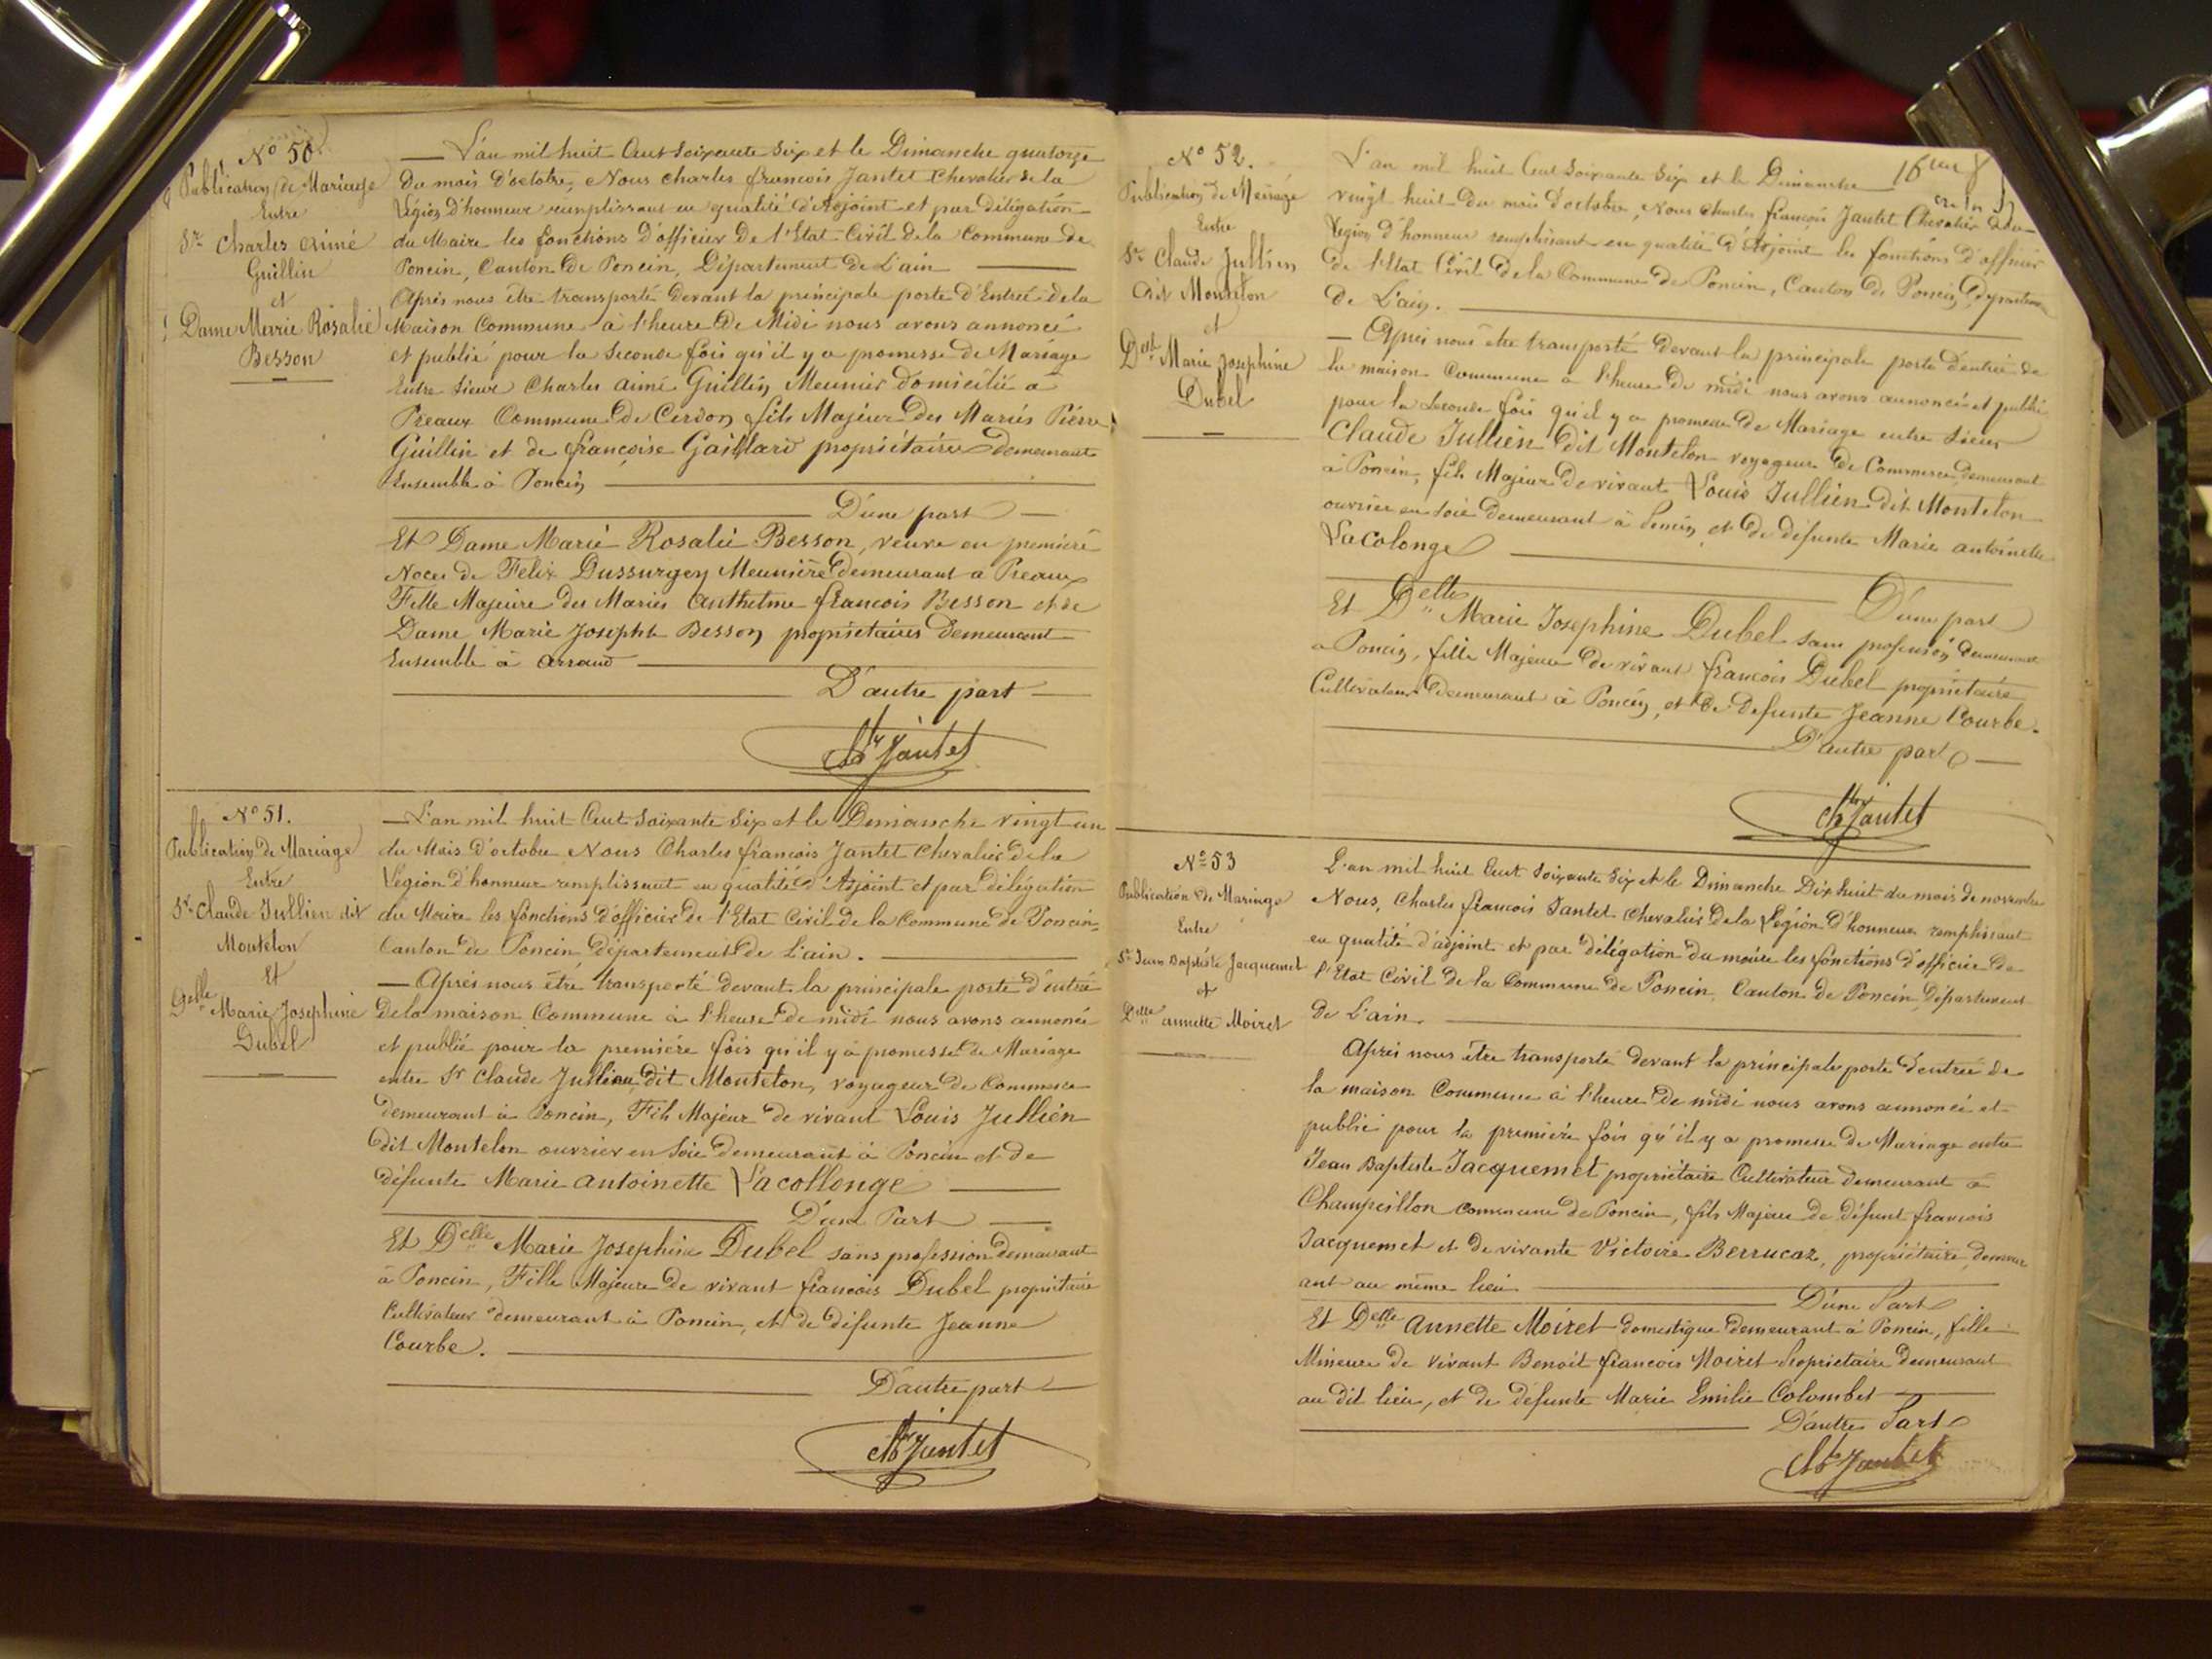 N° 50.
Publication de Mariage
Entre
Sr Charles Aimé
Guillin
et
Dame Marie Rosalie
Besson
L'an mil huit Cent soixante six et le Dimanche quatorze
du mois d'octobre, Nous Charles françois Jantet Chevalier de la
Légion d'honneur remplissant en qualité d'Adjoint et par délégation
du Maire les fonctions d'officier De l'Etat Civil de la Commune de
Poncin, Canton de Poncin, Département de L'ain
Après nous être transporté devant la principale porte d'Entrée de la
Maison Commune à l'heure de Midi nous avons annoncé
et publié pour la seconde fois qu'il y a promesse de Mariage
Entre sieur Charles aimé Guillin Meunier domicilié à
Preaux Commune de Cerdon fils Majeur des Mariés Pierre
Guillin et de françoise Gaillard propriétaires demeurant
Ensemble à Poncin
D'une part
Et Dame Marie Rosalie Besson, veuve en première
Noces de Félix Dussurgey Meunière demeurant à Preaux
Fille Majeure des Mariés Anthelme françois Besson et de
Dame Marie Josephte Besson propriétaires demeurant
Ensemble à arraud
D'autre part
Chs Jantet
N° 51.
Publication de Mariage
Entre
Sr Claude Jullien dit
Montelon
Et
Delle Marie Josephine
Dubel
L'an mil huit Cent Soixante Six et le Dimanche vingt un
du Mois d'octobre Nous Charles françois Jantet Chevalier de la
Légion d'honneur remplissant en qualité d'Adjoint et par délégation
du Maire les fonctions d'officier de l'Etat Civil de la Commune de Poncin
Canton de Poncin département de L'ain.
Après nous être transporté devant la principale porte d'entrée
De la maison Commune à l'heure de midi nous avons annoncé
et publié pour la première fois qu'il y a promesse de Mariage
entre Sr Claude Jullien dit Montelon, voyageur de Commerce
demeurant à Poncin, Fils Majeur de vivant Louis Jullien
dit Montelon ouvrier en soie demeurant à Poncin et de
défunte Marie antoinette Lacollonge
D'une Part
Et Delle Marie Josephine Dubel sans profession demeurant
à Poncin, Fille Majeure de vivant françois Dubel propriétaire
Cultivateur demeurant à Poncin, et de défunte Jeanne
Courbe.
D'autre part
Chs Jantet
N° 52.
Publication de Mariage
Entre
Sr Claude Jullien
dit Montelon
et
Delle Marie Josephine
Dubel
L'an mil huit Cent soixante Six et le Dimanche
vingt huit du mois d'octobre, Nous Charles françois Jantet Chevalier de la
Légion d'honneur remplissant en qualité d'Adjoint les fonctions d'officier
de l'Etat Civil de la Commune de Poncin, Canton de Poncin, Département
de L'ain.
Après nous être transporté devant la principale porte d'entrée de
la maison Commune à l'heure de midi nous avons annoncé et publié
pour la seconde fois qu'il y a promesse de Mariage entre sieur
Claude Jullien dit Montelon voyageur de Commerce demeurant
à Poncin, fils Majeur de vivant Louis Jullien dit Montelon
ouvrier en soie demeurant à Poncin et de défunte Marie antoinette
Lacolonge
D'une part
Et Delle Marie Josephine Dubel sans profession demeurant
à Poncin, fille Majeure de vivant françois Dubel propriétaire
Cultivateur demeurant à Poncin, et de défunte Jeanne Courbe.
D'autre part
Chs Jantet
N° 53
Publication de Mariage
Entre
Sr Jean Baptiste Jacquemet
et
Delle annette Moiret
L'an mil huit Cent soixante Six et le Dimanche Dix huit du mois de novembre
Nous, Charles françois Jantet Chevalier de la Légion d'honneur remplissant
en qualité d'adjoint et par délégation du maire les fonctions d'officier de
l'Etat Civil de la Commune de Poncin, Canton de Poncin, Département
de L'ain.
Après nous être transporté devant la principale porte d'entrée de
la maison Commune à l'heure de midi nous avons annoncé et
publié pour la première fois qu'il y a promesse de Mariage entre
Jean Baptiste Jacquemet propriétaire Cultivateur demeurant à
Champeillon commune de Poncin, fils Majeur de défunt françois
Jacquemet et de vivante Victoire Berrucaz, propriétaire, demeur
ant au même lieu
D'une Part
Et Delle annette Moiret domestique demeurant à Poncin, fille
Mineure de vivant Benoit françois Moiret Propriétaire demeurant
au dit lieu, et de défunte Marie Emilie Colombet
D'autre Part
Chs Jantet